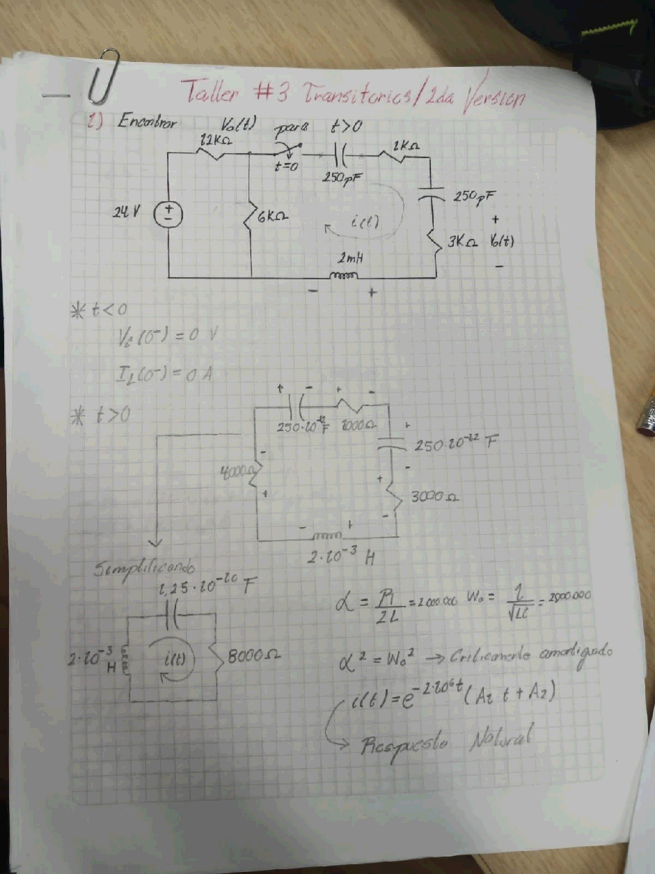 Taller #3 Transitorios/2da Version
1) Encontrar Vo(t) para t>0
12KΩ
t=0
250pF
1KΩ
24V
6KΩ
i(t)
250pF
+
3KΩ Vo(t)
-
2mH
- +
* t<0
Vc(0⁻)=0 V
IL(0⁻)=0 A
* t>0
+ - + -
250·10⁻¹² F 1000Ω
+
250·10⁻¹² F
-
4000Ω
- +
+ -
3000Ω
- +
2·10⁻³ H
Simplificando
1,25·10⁻¹⁰ F
2·10⁻³ H
i(t)
8000Ω
α = R/2L = 2000000 Wo = 1/√LC = 2000000
α² = Wo² → Criticamente amortiguado
i(t) = e^-2·10⁶t (A1 t + A2)
→ Respuesta Natural